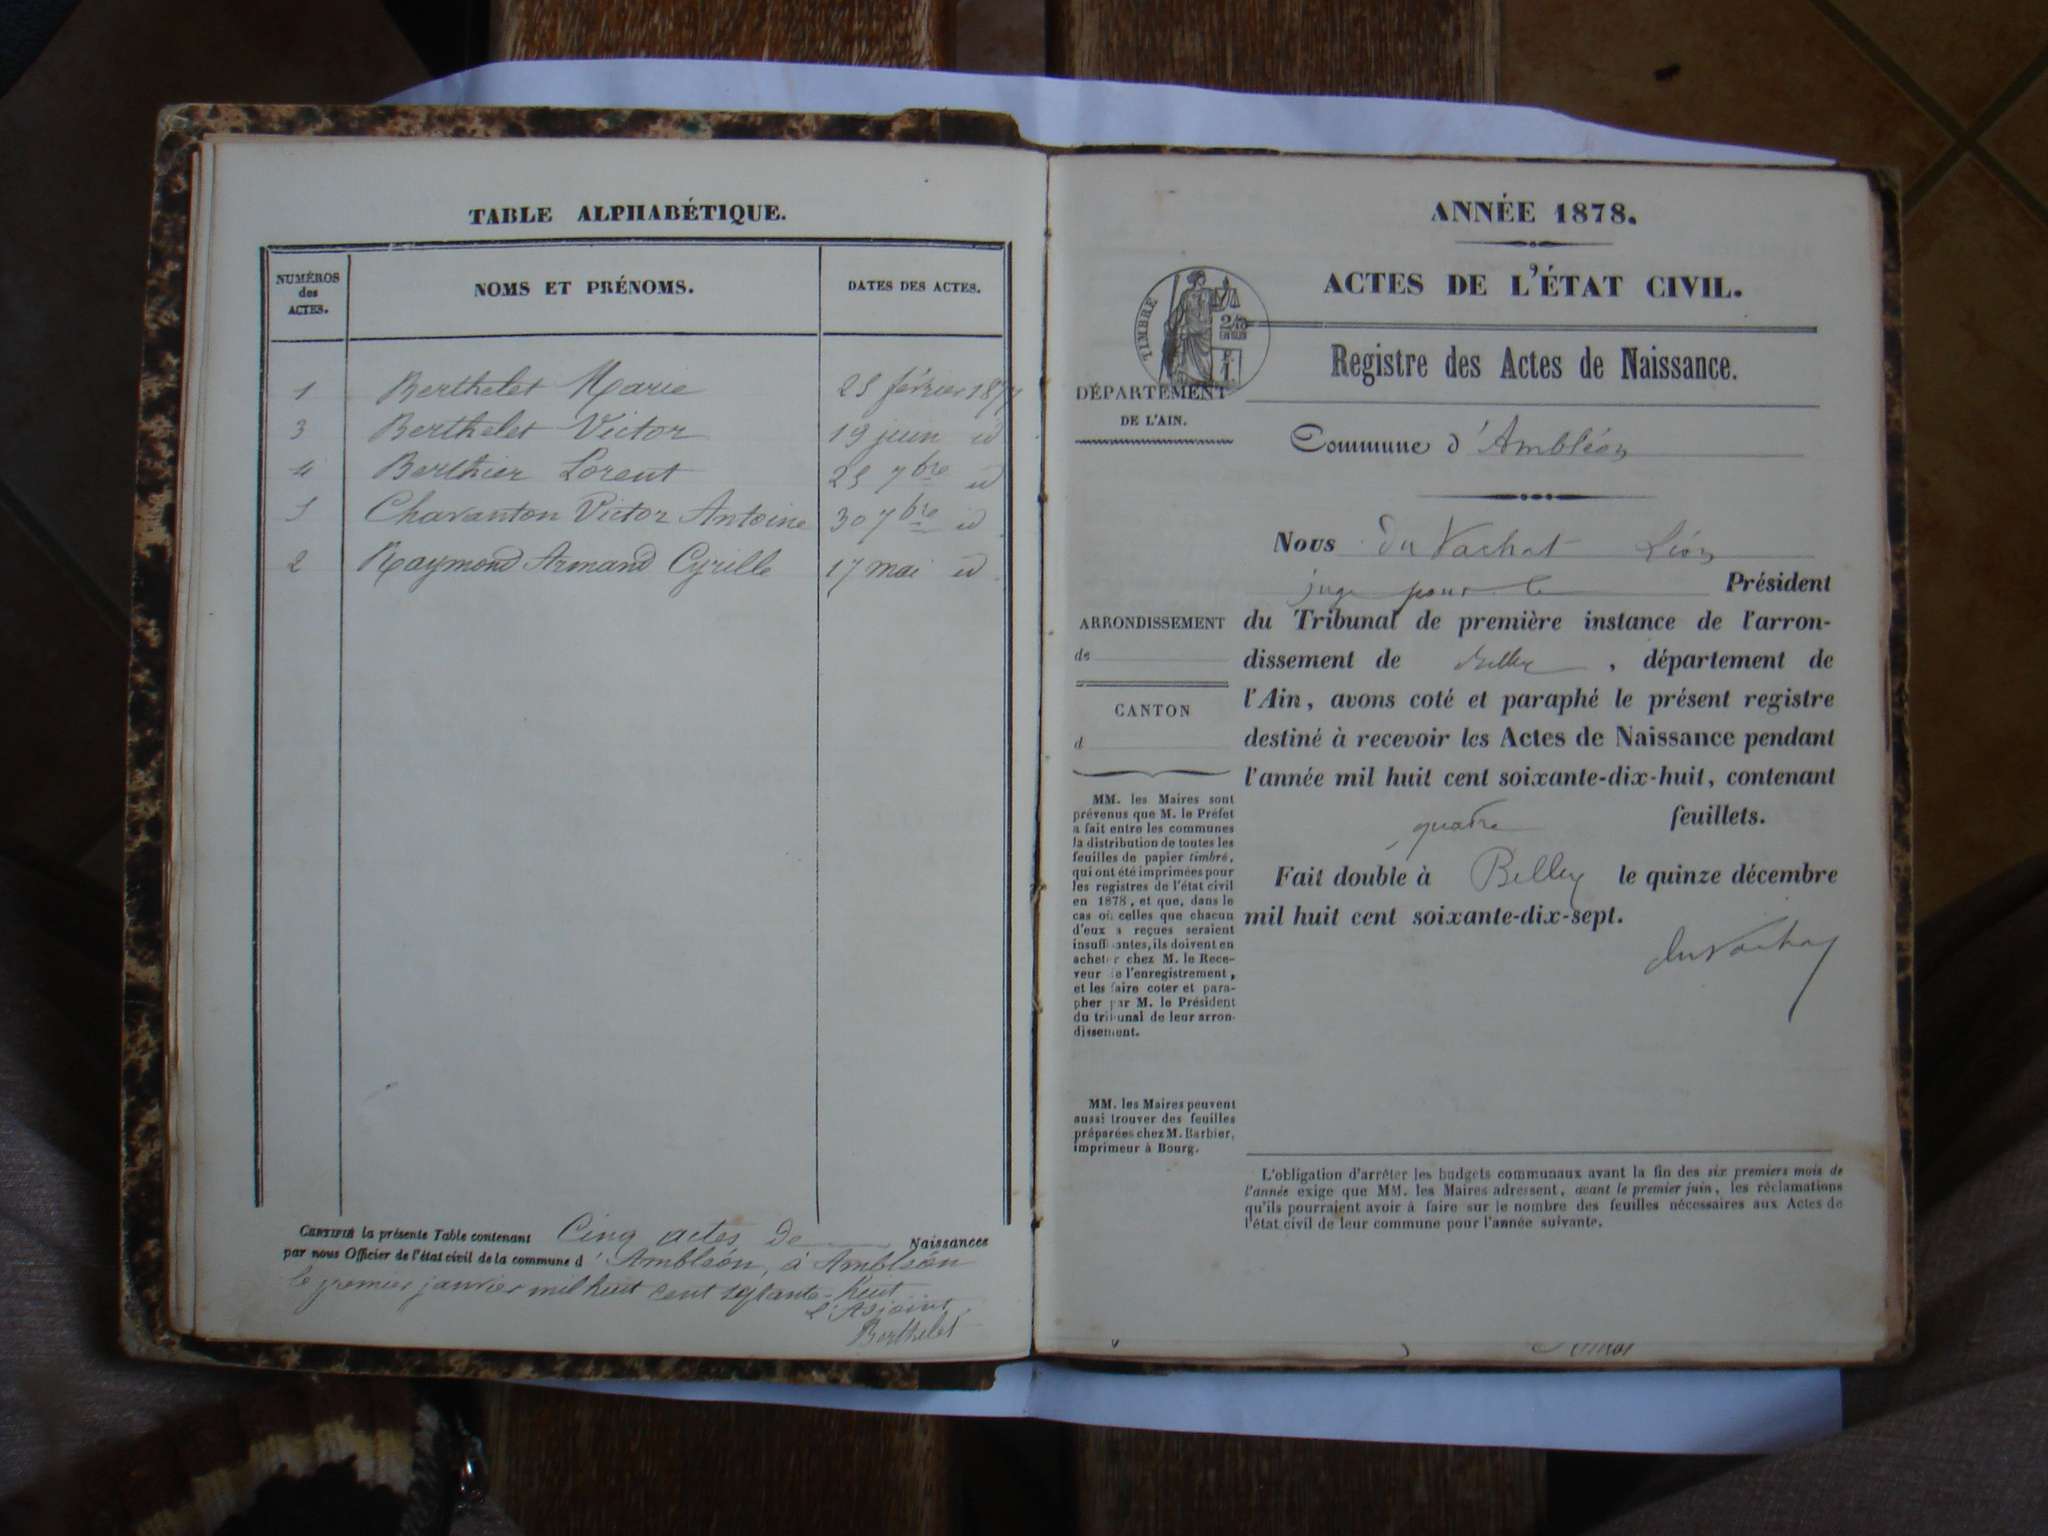 TABLE ALPHABÉTIQUE.
NUMÉROS des ACTES. NOMS ET PRÉNOMS. DATES DES ACTES.
1 Berthelet Marie 25 février 1877
3 Berthelet Victor 19 juin id
4 Berthier Lorent 25 7bre id
5 Chavanton Victor Antoine 30 7bre id
2 Raymond Armand Cyrille 17 mai id
CERTIFIÉ la présente Table contenant Cinq actes de Naissances
par nous Officier de l'état civil de la commune d'Ambléon, à Ambléon
le premier janvier mil huit cent septante-huit
L'Adjoint
Berthelet
ANNÉE 1878.
ACTES DE L'ÉTAT CIVIL.
TIMBRE
Registre des Actes de Naissance.
DÉPARTEMENT
DE L'AIN.
Commune d'Ambléon
Nous Du Vachat Léon
juge pour le Président
ARRONDISSEMENT
de
CANTON
d
du Tribunal de première instance de l'arron-
dissement de Belley, département de
l'Ain, avons coté et paraphé le présent registre
destiné à recevoir les Actes de Naissance pendant
l'année mil huit cent soixante-dix-huit, contenant
quatre feuillets.
Fait double à Belley le quinze décembre
mil huit cent soixante-dix-sept.
duVachat
MM. les Maires sont
prévenus que M. le Préfet
a fait entre les communes
la distribution de toutes les
feuilles de papier timbré,
qui ont été imprimées pour
les registres de l'état civil
en 1878, et que, dans le
cas où celles que chacun
d'eux a reçues seraient
insuffisantes, ils doivent en
acheter chez M. le Rece-
veur de l'enregistrement,
et les faire coter et para-
pher par M. le Président
du tribunal de leur arron-
dissement.
MM. les Maires peuvent
aussi trouver des feuilles
préparées chez M. Barbier,
imprimeur à Bourg.
L'obligation d'arrêter les budgets communaux avant la fin des six premiers mois de
l'année exige que MM. les Maires adressent, avant le premier juin, les réclamations
qu'ils pourraient avoir à faire sur le nombre des feuilles nécessaires aux Actes de
l'état civil de leur commune pour l'année suivante.